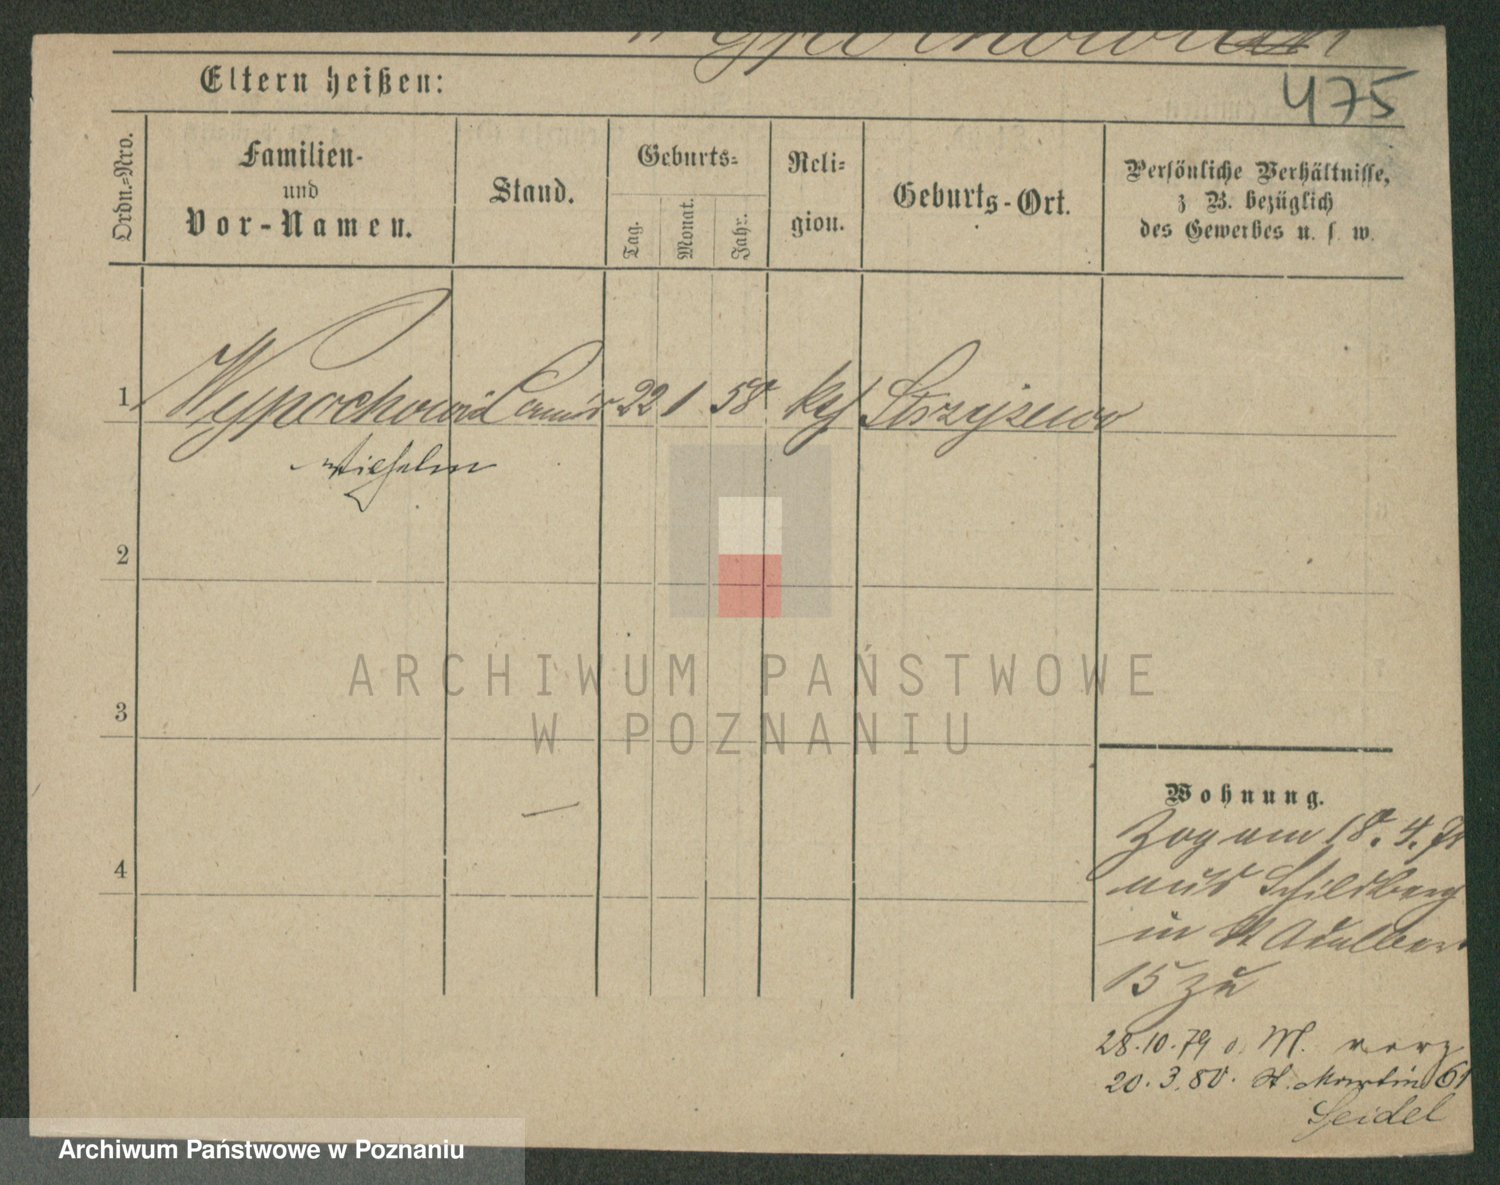 475
Eltern heißen:
Ordn.-Nro.
Familien-
und
Vor-Namen.
Stand.
Geburts-
Tag.
Monat.
Jahr.
Reli-
gion.
Geburts-Ort.
Persönliche Verhältnisse,
z B. bezüglich
des Gewerbes u. s w.
1 22 1 58 kth Strzyzewo
Wilhelm
2
ARCHIWUM PAŃSTWOWE
W POZNANIU
3
Wohnung.
Zog am 18. 4.
aus Schildberg
in St Adalbert
15 zu
4
28.10.79 M. verz
20.3.80. St. Martin 61
Seidel
Archiwum Państwowe w Poznaniu